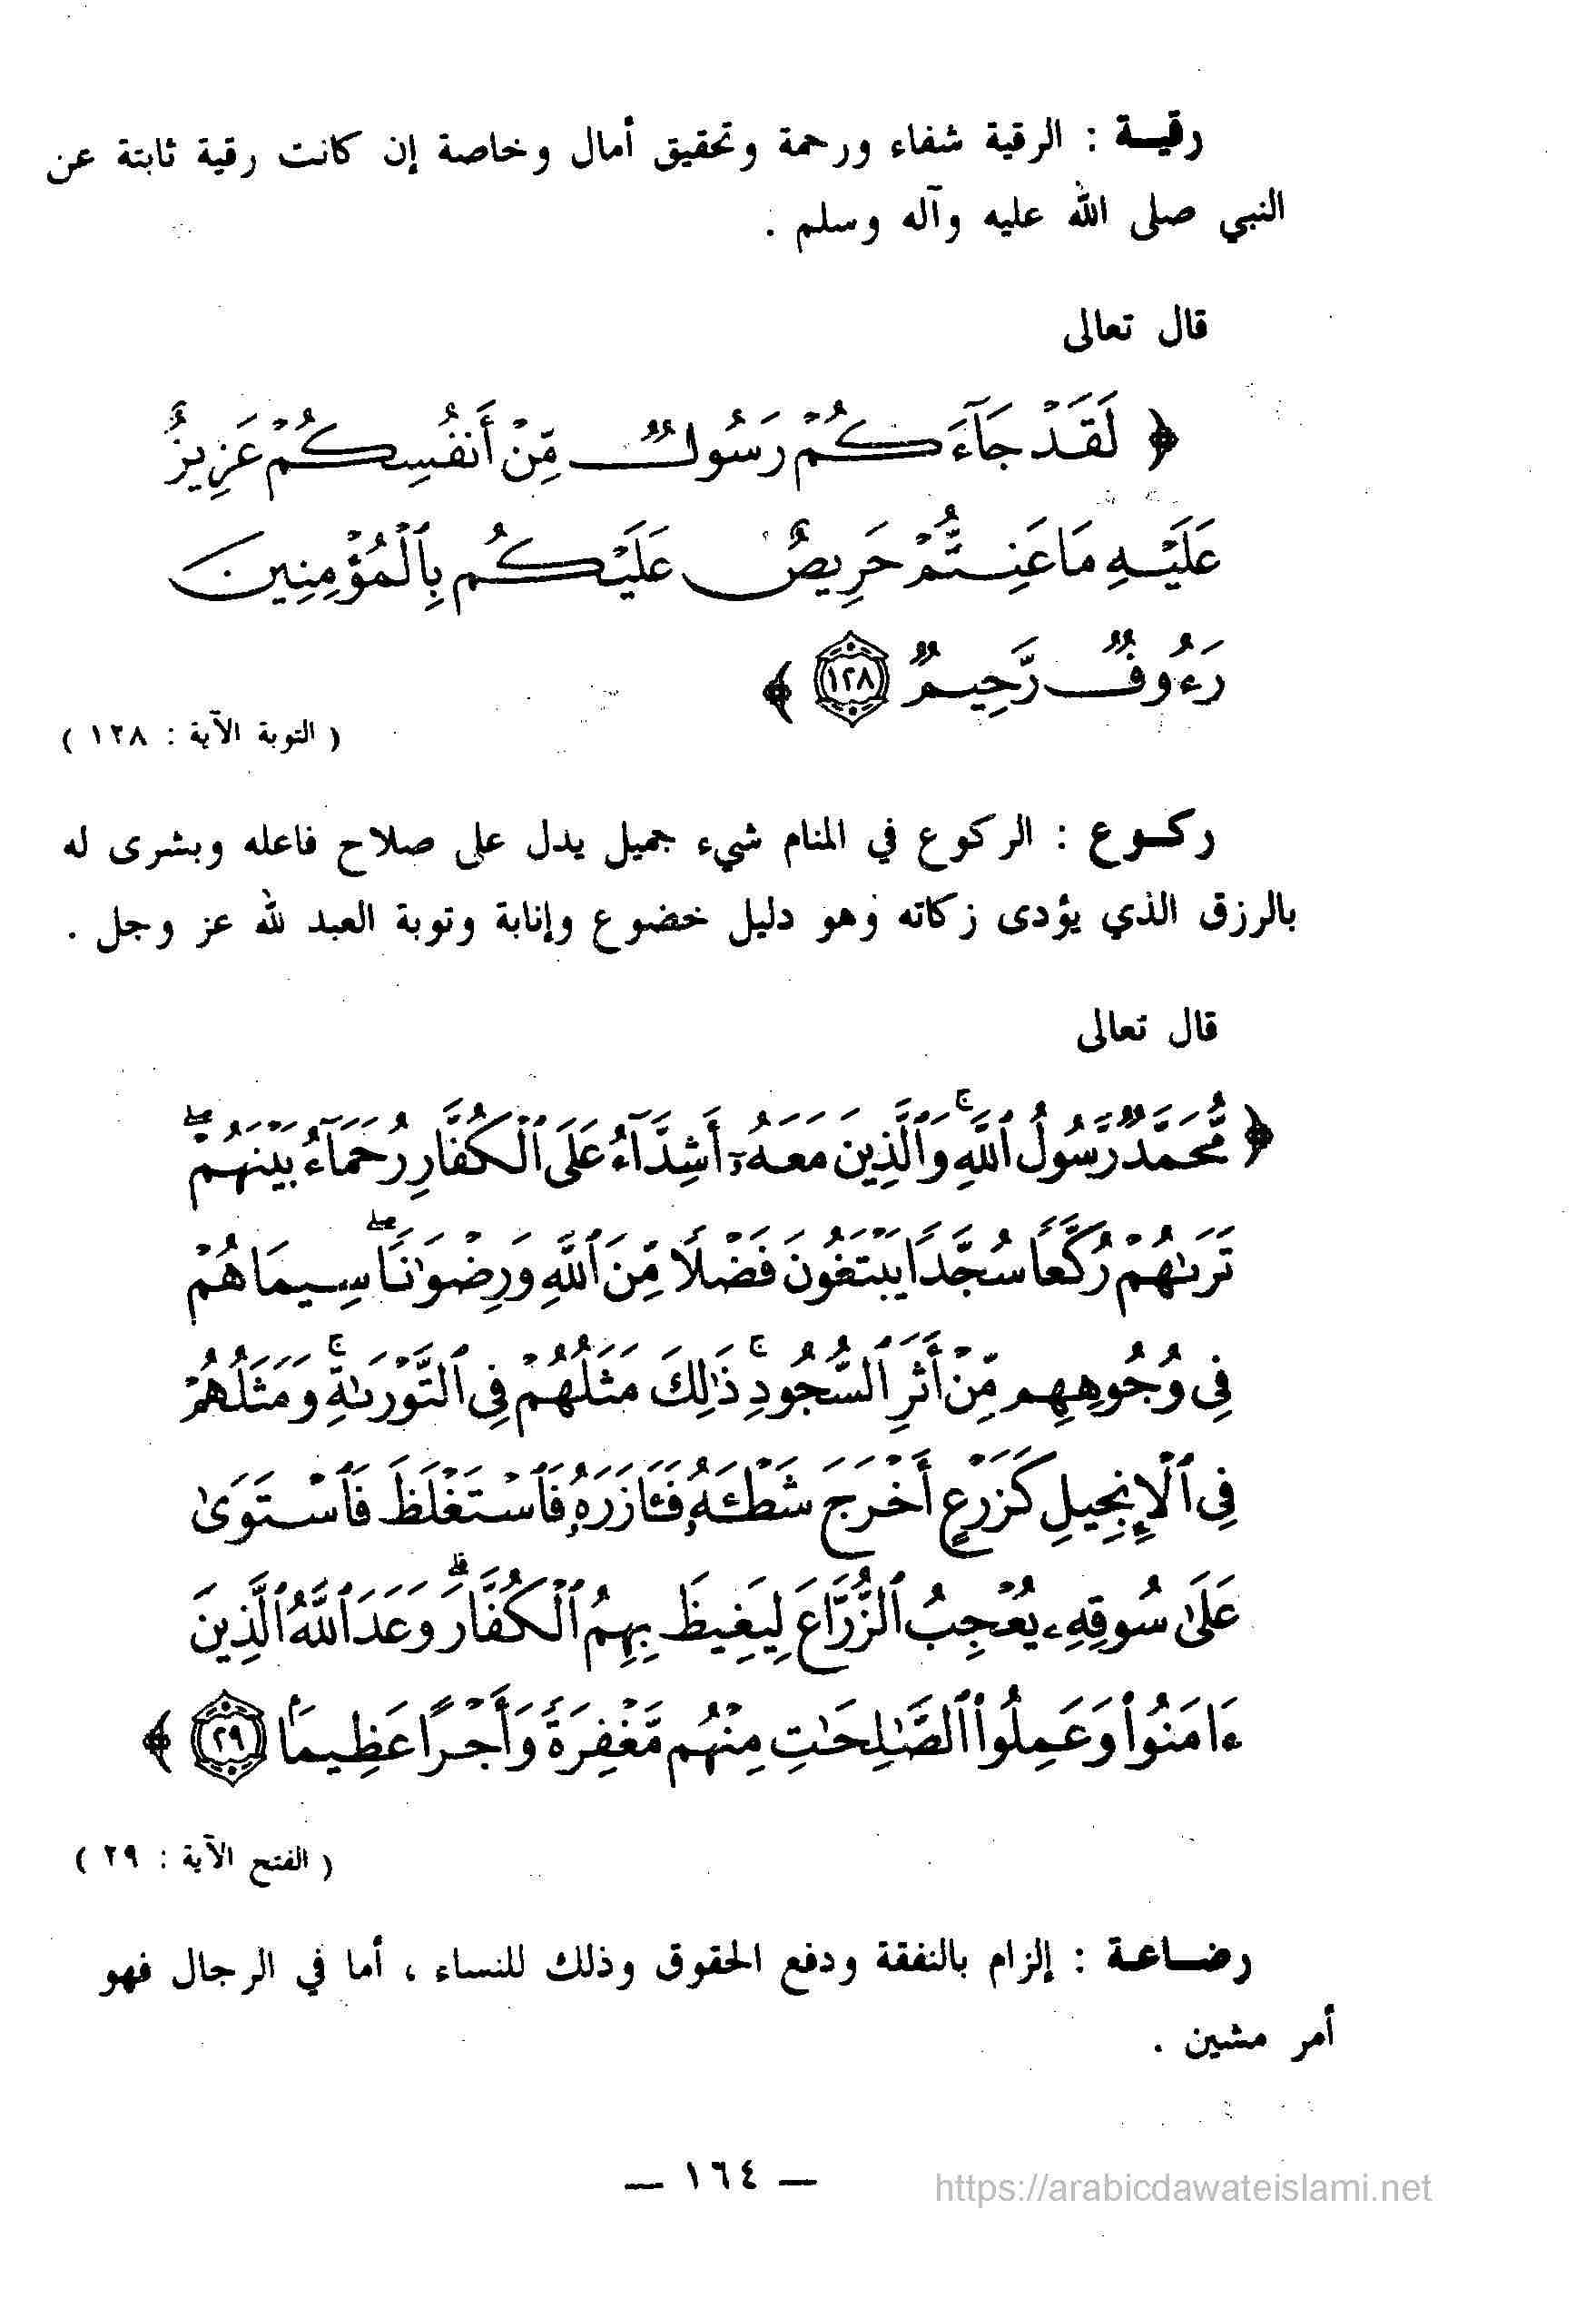 رقيـة : الرقية شفاء ورحمة وتحقيق أمال وخاصة إن كانت رقية ثابتة عن
النبي صلى الله عليه وآله وسلم .
قال تعالى
﴿ لَقَدْ جَآءَكُمْ رَسُولٌ مِّنْ أَنفُسِكُمْ عَزِيزٌ
عَلَيْهِ مَا عَنِتُّمْ حَرِيصٌ عَلَيْكُم بِٱلْمُؤْمِنِينَ
رَءُوفٌ رَّحِيمٌ ١٢٨ ﴾
( التوبة الآية : ١٢٨ )
ركـوع : الركوع في المنام شيء جميل يدل على صلاح فاعله وبشرى له
بالرزق الذي يؤدى زكاته وهو دليل خضوع وإنابة وتوبة العبد لله عز وجل .
قال تعالى
﴿ مُّحَمَّدٌ رَّسُولُ ٱللَّهِ ۚ وَٱلَّذِينَ مَعَهُۥٓ أَشِدَّآءُ عَلَى ٱلْكُفَّارِ رُحَمَآءُ بَيْنَهُمْ ۖ
تَرَىٰهُمْ رُكَّعًا سُجَّدًا يَبْتَغُونَ فَضْلًا مِّنَ ٱللَّهِ وَرِضْوَٰنًا ۖ سِيمَاهُمْ
فِى وُجُوهِهِم مِّنْ أَثَرِ ٱلسُّجُودِ ۚ ذَٰلِكَ مَثَلُهُمْ فِى ٱلتَّوْرَىٰةِ ۚ وَمَثَلُهُمْ
فِى ٱلْإِنجِيلِ كَزَرْعٍ أَخْرَجَ شَطْـَٔهُۥ فَـَٔازَرَهُۥ فَٱسْتَغْلَظَ فَٱسْتَوَىٰ
عَلَىٰ سُوقِهِۦ يُعْجِبُ ٱلزُّرَّاعَ لِيَغِيظَ بِهِمُ ٱلْكُفَّارَ ۗ وَعَدَ ٱللَّهُ ٱلَّذِينَ
ءَامَنُوا۟ وَعَمِلُوا۟ ٱلصَّٰلِحَٰتِ مِنْهُم مَّغْفِرَةً وَأَجْرًا عَظِيمًۢا ٢٩ ﴾
( الفتح الآية : ٢٩ )
رضـاعـة : إلزام بالنفقة ودفع الحقوق وذلك للنساء ، أما في الرجال فهو
أمر مشين .
— ١٦٤ —
https://arabicdawateislami.net